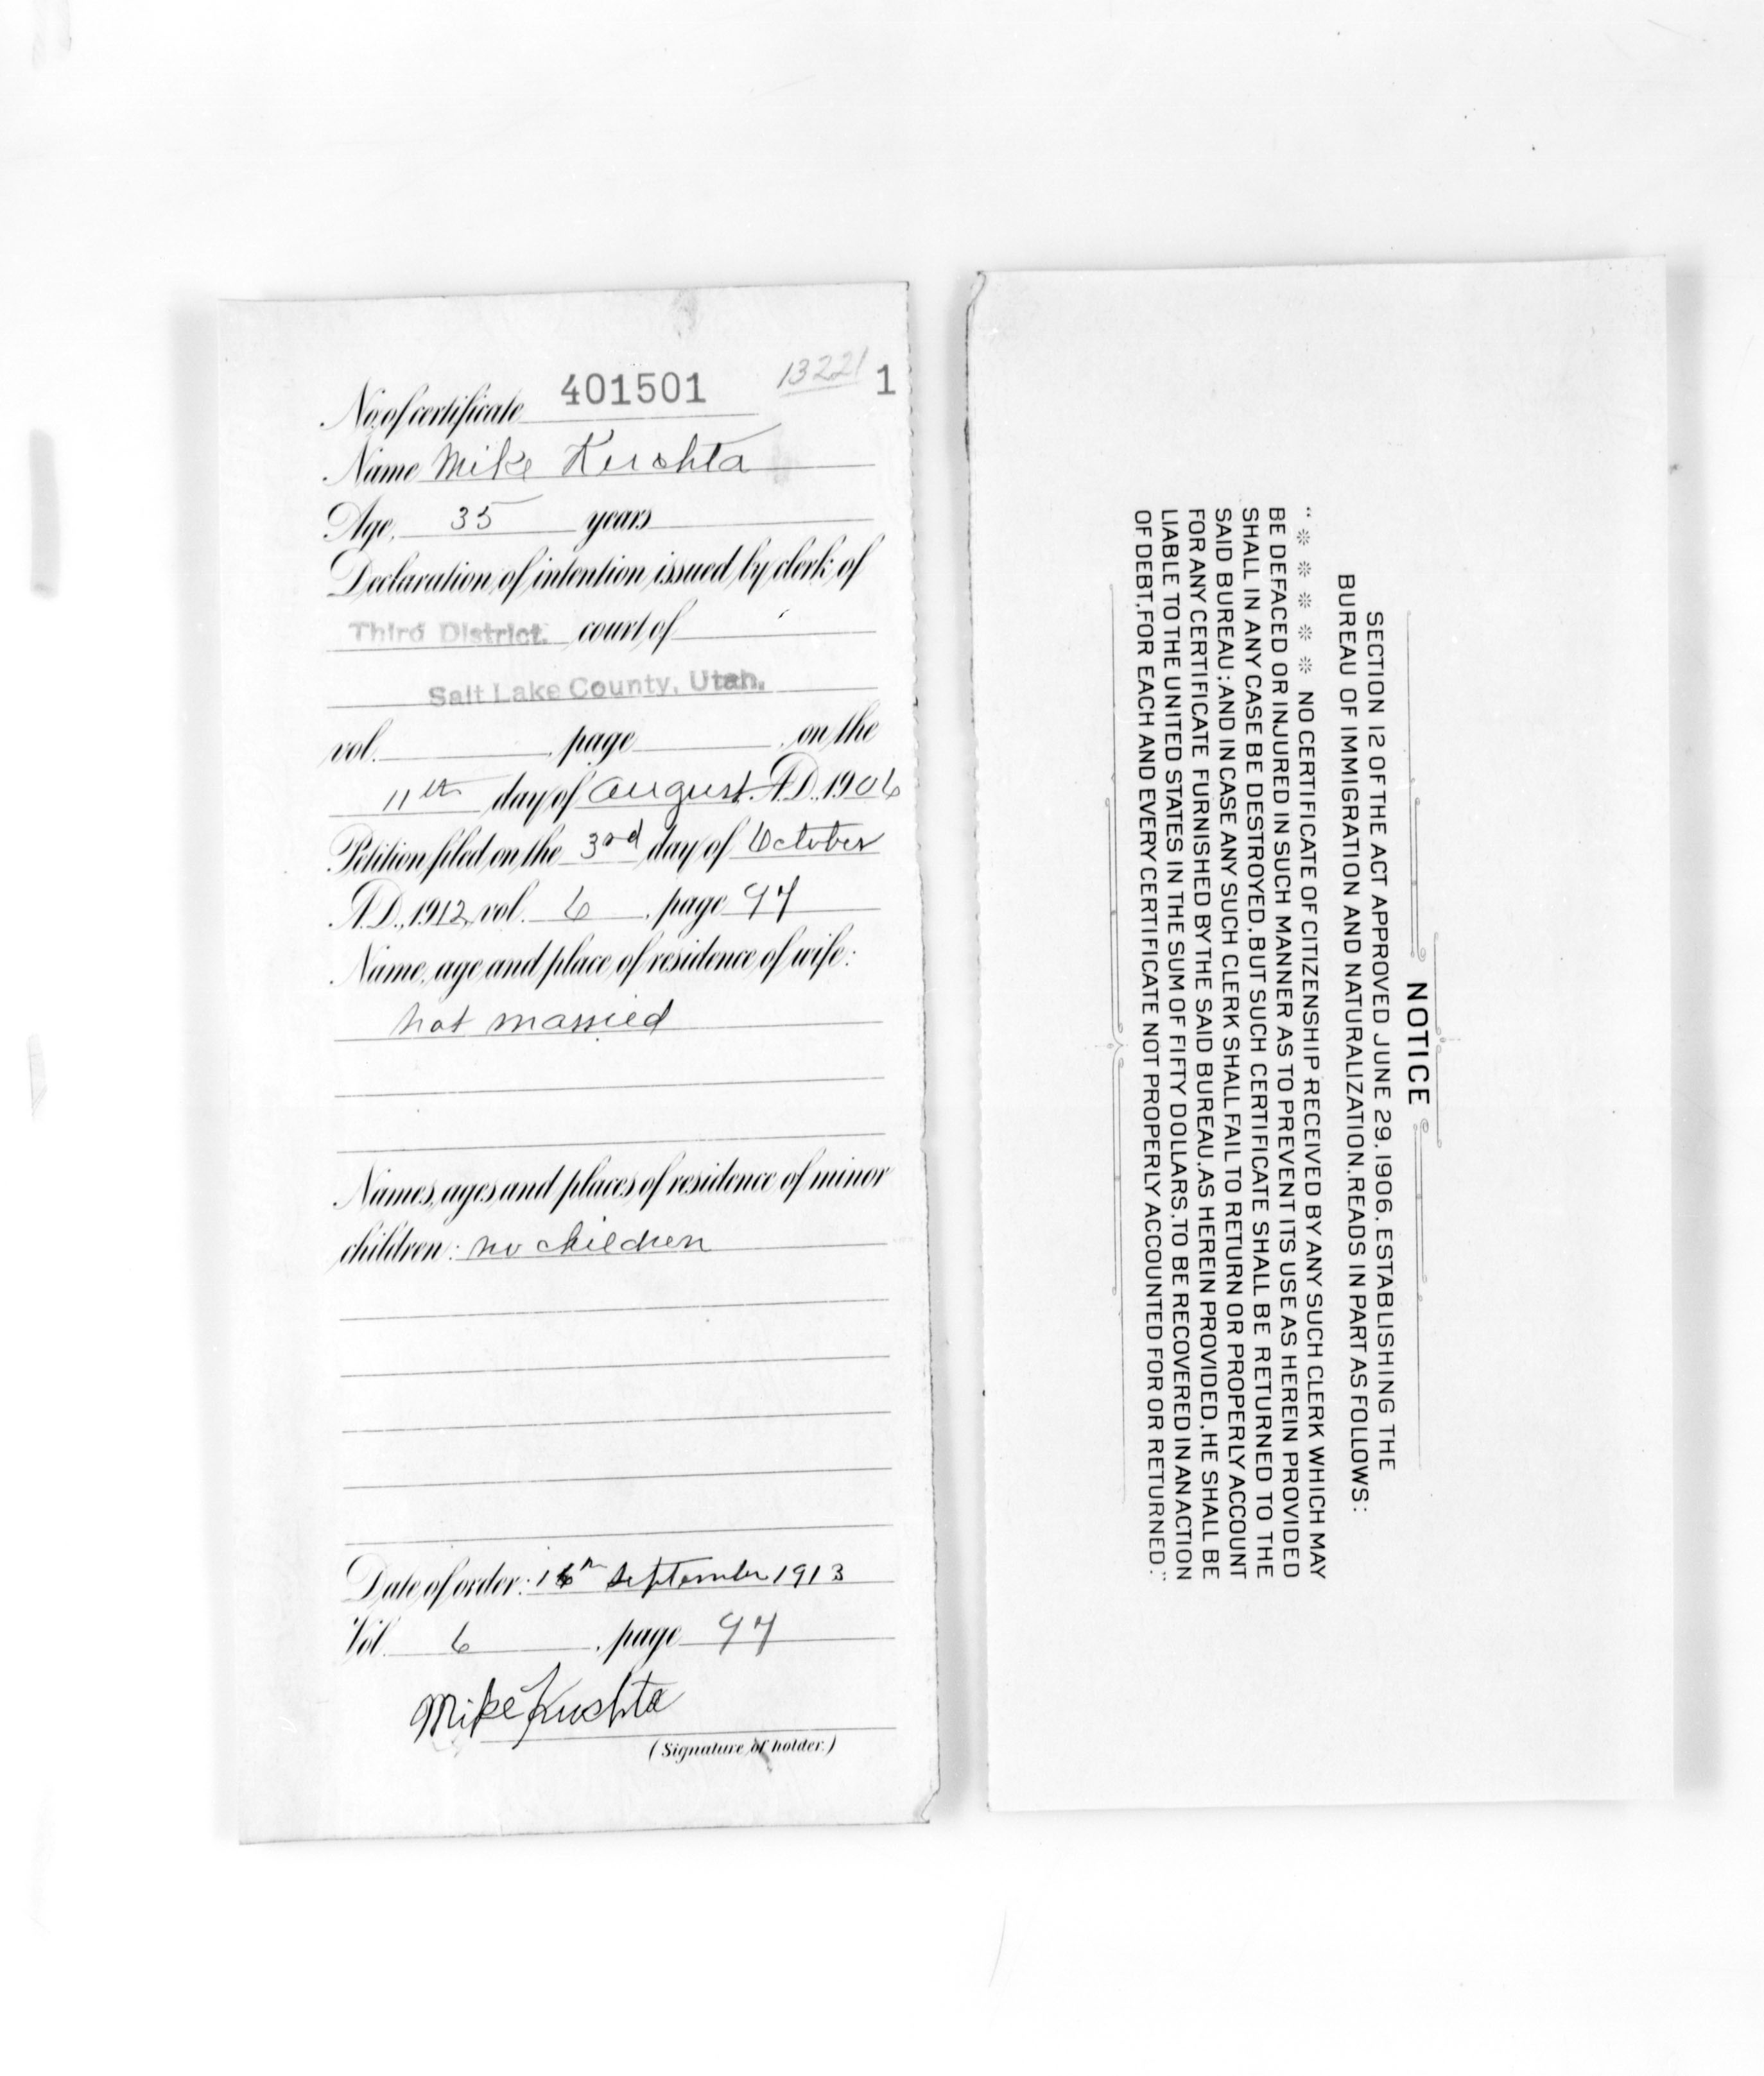 13221
No. of certificate 401501 1
Name Mike Kushta
Age, 35 years
Declaration of intention issued by clerk of
Third District. court of
Salt Lake County, Utah.
vol. , page , on the
11th day of August, A.D., 1906
Petition filed on the 3rd day of October
A.D., 1912, vol. 6 , page 97
Name, age and place of residence of wife:
not married
Names, ages and places of residence of minor
children: no children
Date of order: September 1913
Vol. 6 , page 97
Mike Kushta
(Signature of holder.)
NOTICE
SECTION 12 OF THE ACT APPROVED JUNE 29, 1906, ESTABLISHING THE
BUREAU OF IMMIGRATION AND NATURALIZATION, READS IN PART AS FOLLOWS:
“ * * * * * NO CERTIFICATE OF CITIZENSHIP RECEIVED BY ANY SUCH CLERK WHICH MAY
BE DEFACED OR INJURED IN SUCH MANNER AS TO PREVENT ITS USE AS HEREIN PROVIDED
SHALL IN ANY CASE BE DESTROYED, BUT SUCH CERTIFICATE SHALL BE RETURNED TO THE
SAID BUREAU; AND IN CASE ANY SUCH CLERK SHALL FAIL TO RETURN OR PROPERLY ACCOUNT
FOR ANY CERTIFICATE FURNISHED BY THE SAID BUREAU, AS HEREIN PROVIDED, HE SHALL BE
LIABLE TO THE UNITED STATES IN THE SUM OF FIFTY DOLLARS, TO BE RECOVERED IN AN ACTION
OF DEBT, FOR EACH AND EVERY CERTIFICATE NOT PROPERLY ACCOUNTED FOR OR RETURNED.”